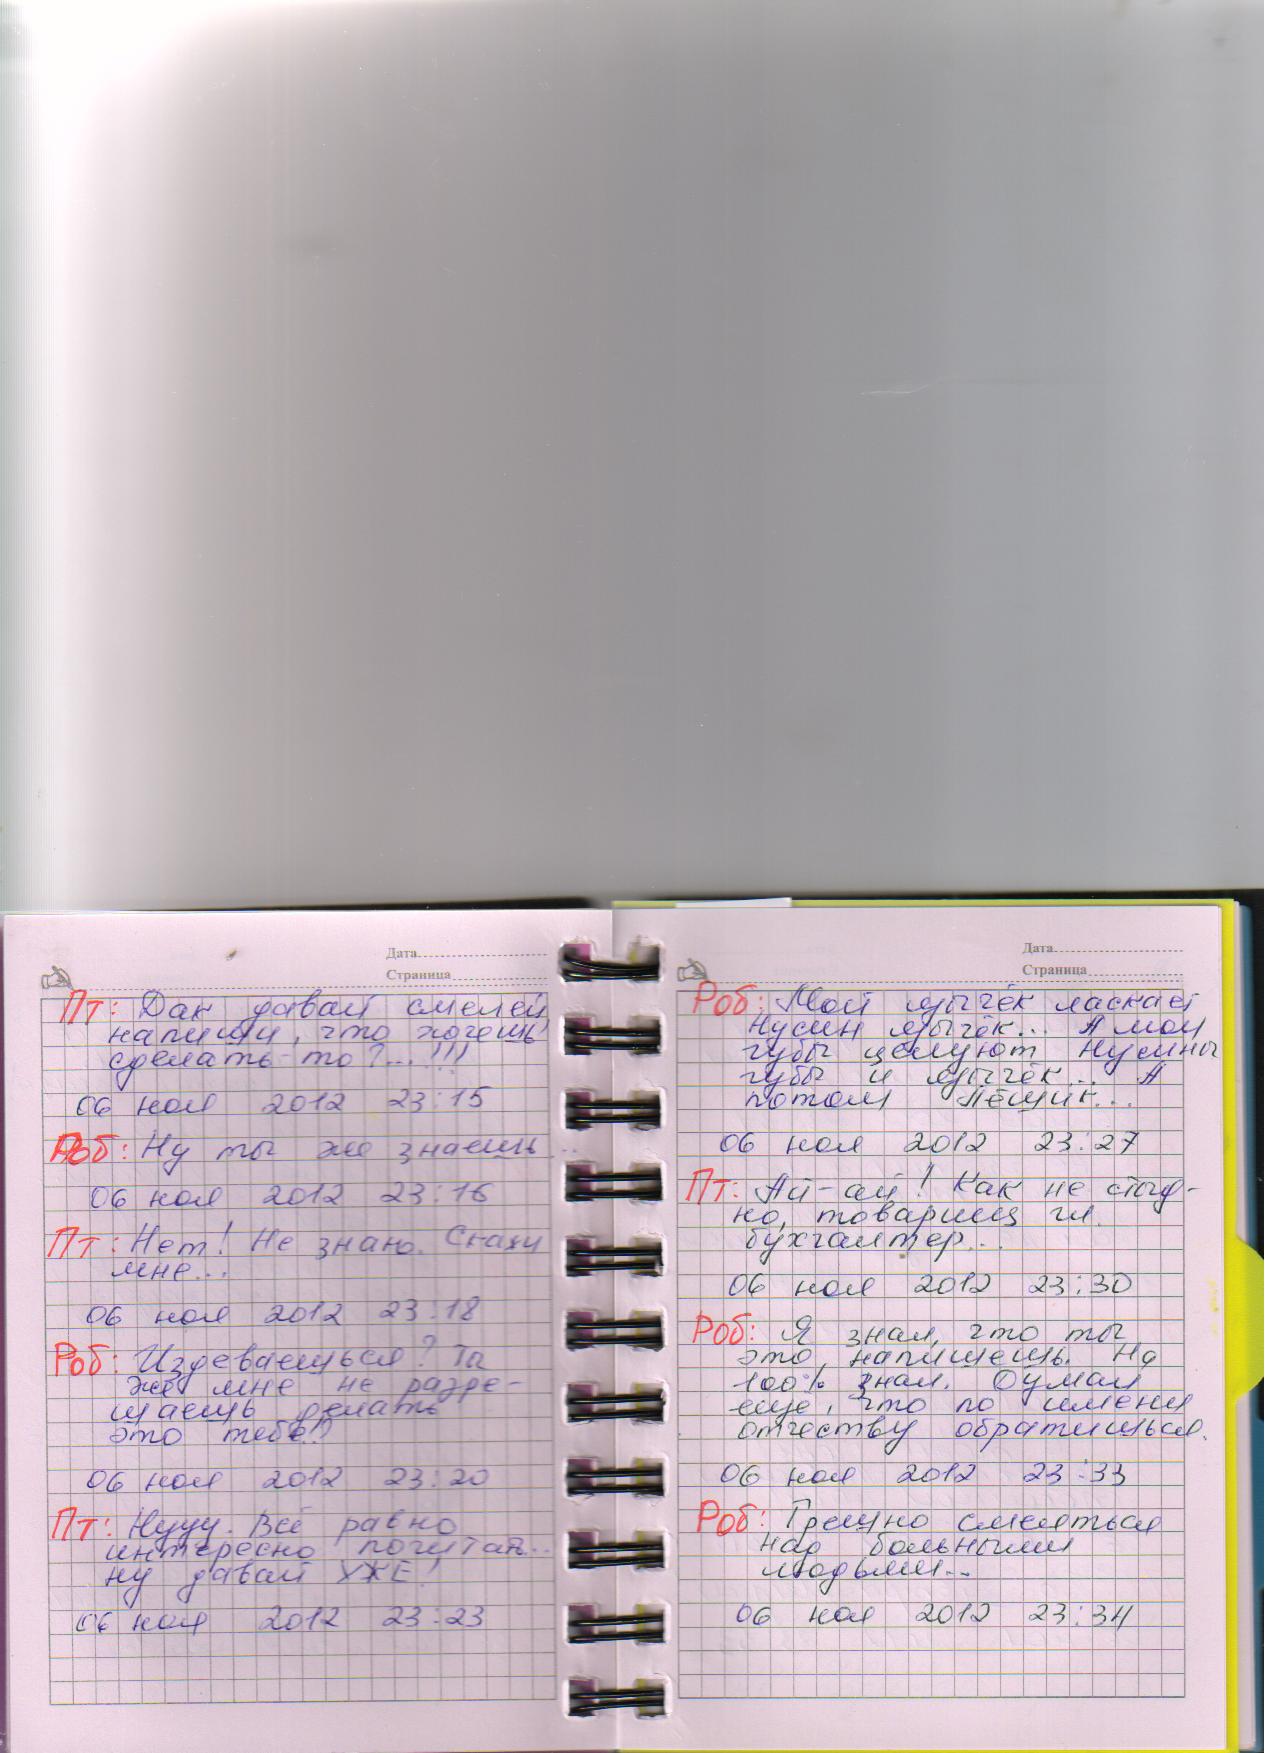 Дата
Страница
Пт: Дак давай смелей
напиши, что хочешь
сделать-то?...!!!
06 ноя 2012 23:15
Роб: Ну ты же знаешь...
06 ноя 2012 23:16
Пт: Нет! Не знаю. Скажи
мне...
06 ноя 2012 23:18
Роб: Издеваешься? Ты
же мне не разре-
шаешь делать
это тебе!?
06 ноя 2012 23:20
Пт: Нууу. Всё равно
интересно почитать...
ну давай УЖЕ!
06 ноя 2012 23:23
Дата
Страница
Роб: Мой язычёк ласкает
Нусин язычёк... А мои
губы целуют Нусины
губы и язычёк... А
потом
06 ноя 2012 23:27
Пт: Ай-ай! Как не стыд-
но, товарищ гл.
бухгалтер...
06 ноя 2012 23:30
Роб: Я знал, что ты
это напишешь. На
100% знал. Думал
еще, что по имени
отчеству обратишься.
06 ноя 2012 23:33
Роб: Грешно смеяться
над больными
людьми...
06 ноя 2012 23:34